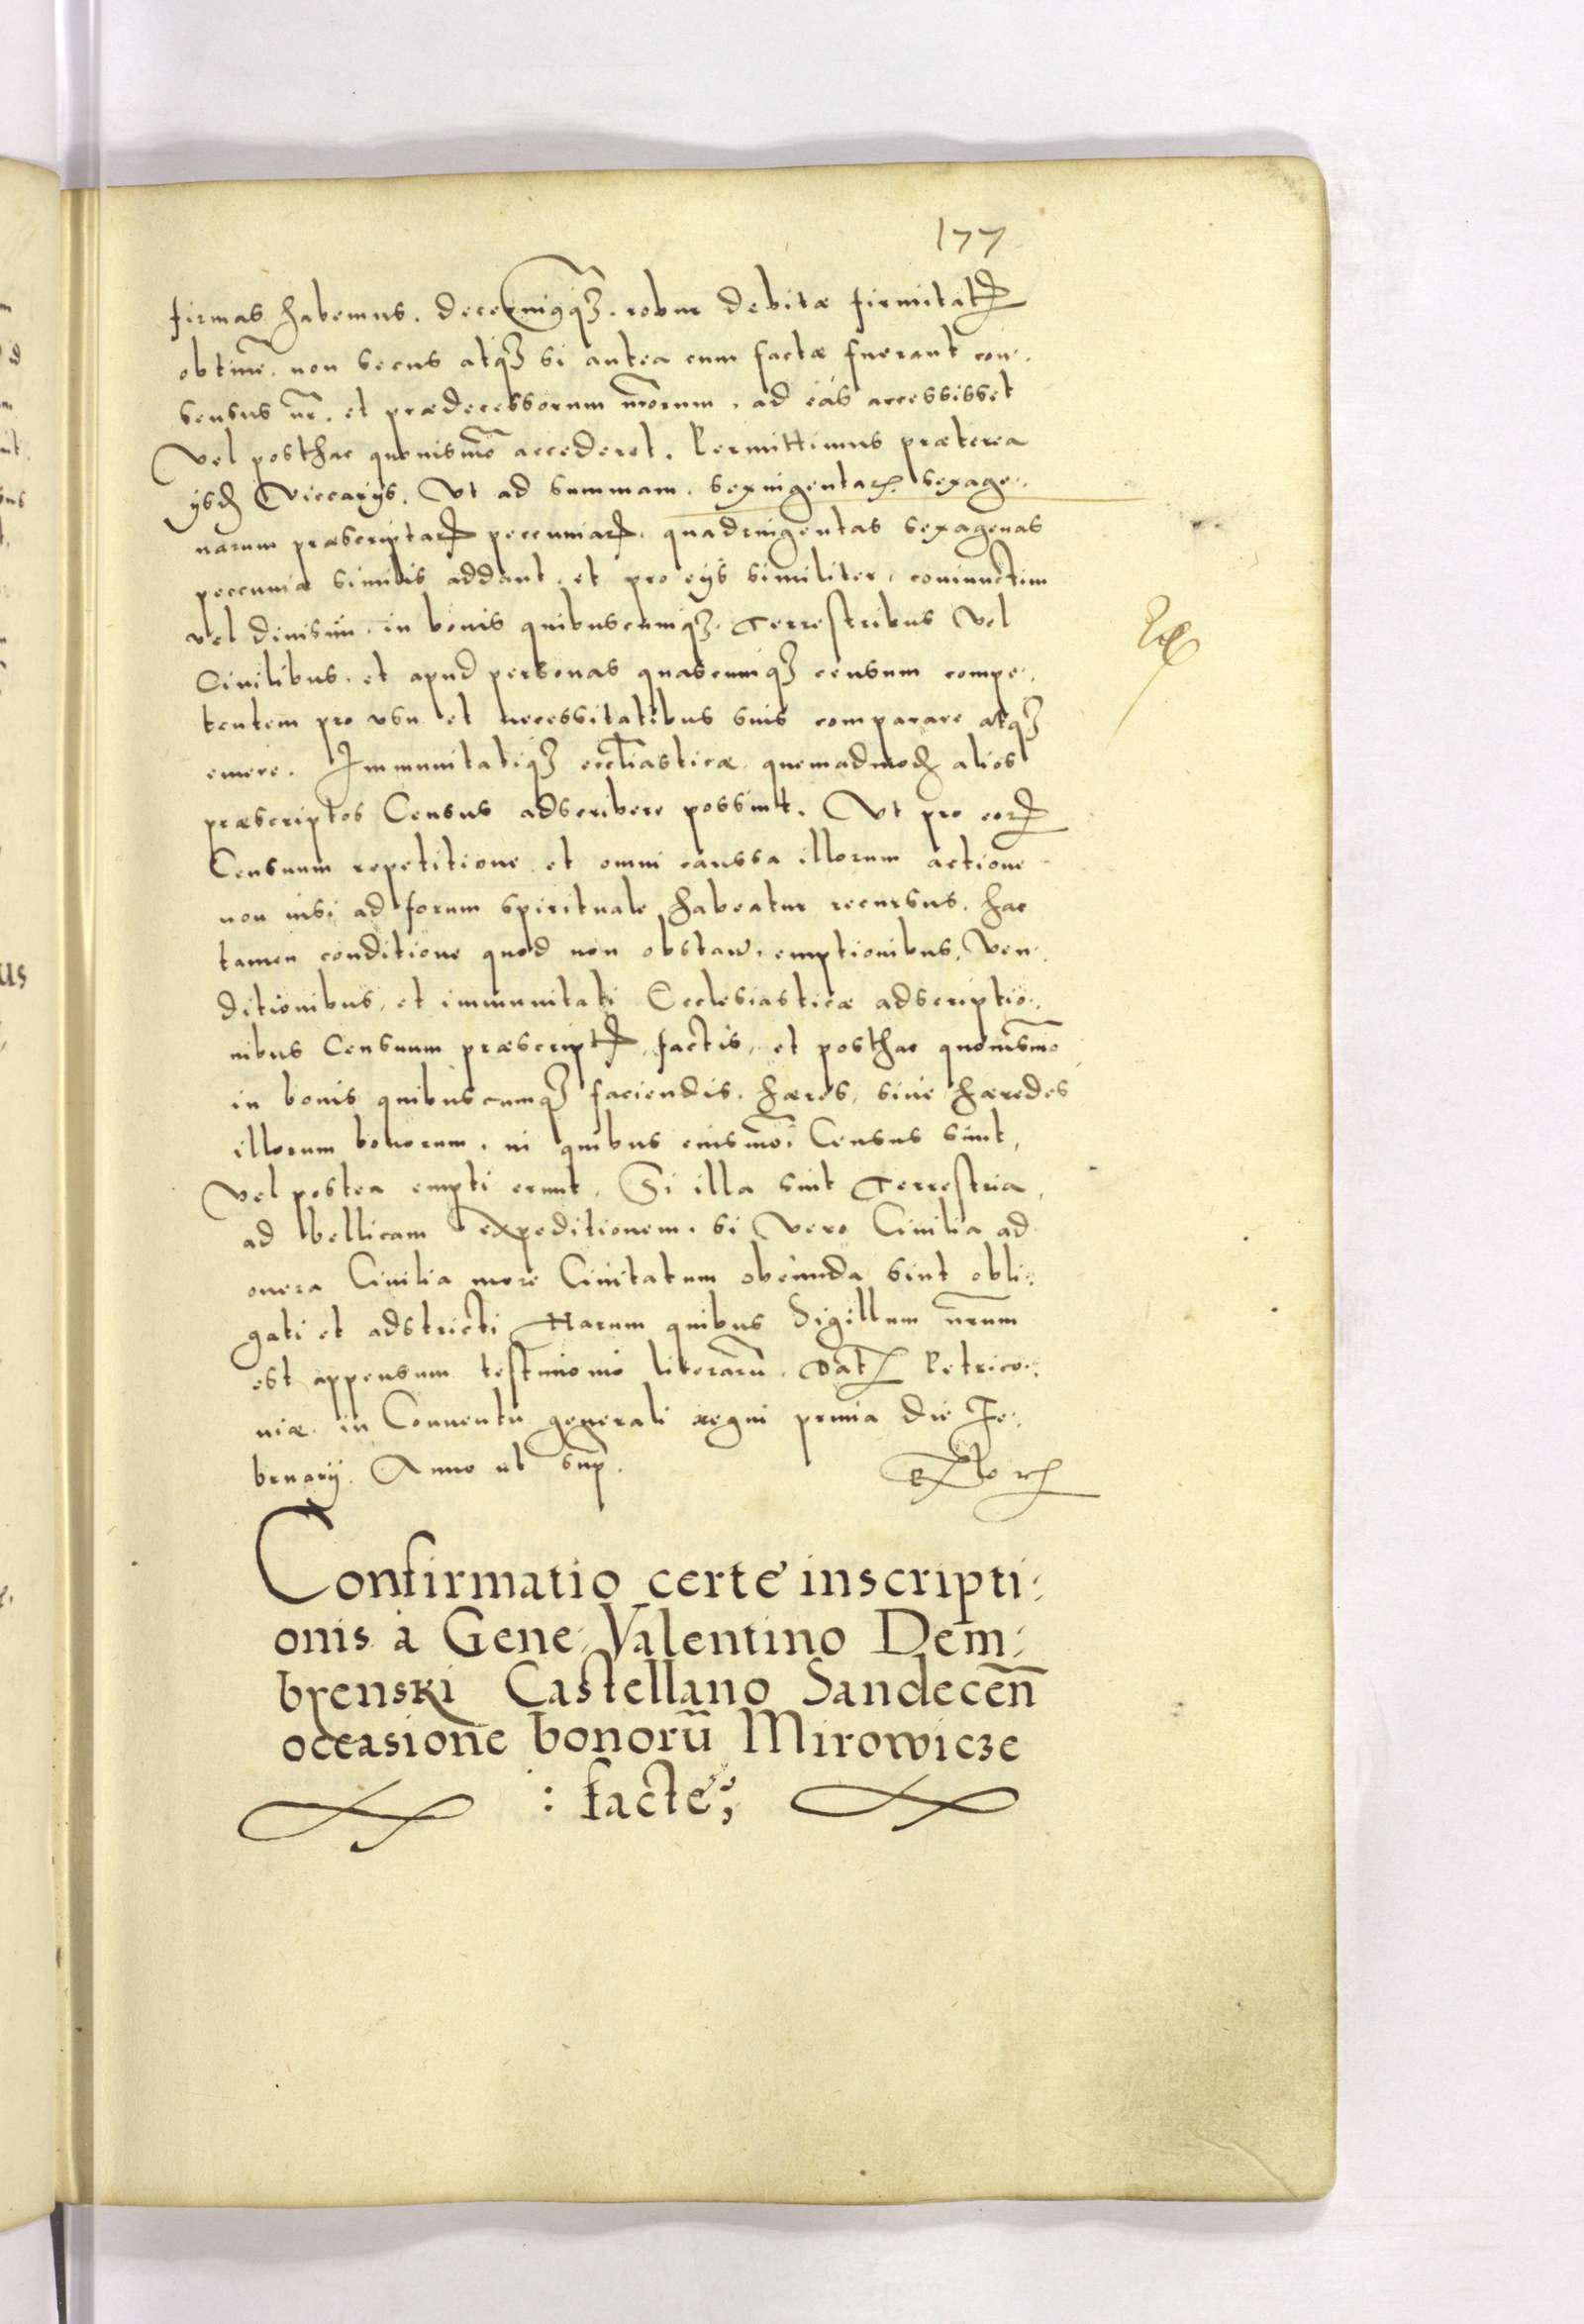 177
firmas habemus. decernimusq3. robur debitæ firmitatis
obtinē. non secus atq3 si antea cum factæ fuerant con-
sensus nr̄. et prædecessorum nrōrum. ad eas accessisset
vel posthac quouismō accederet. Permittimus præterea
ijsd Viccarijs. Vt ad summam. sexingentar. sexage-
narum præscriptar peccuniar. quadringentas sexagenas
peccuniæ similis addant. et pro eijs similiter, coniunctim
vel diuisim. in bonis quibuscumq3. Terrestribus vel
Ciuilibus. et apud personas quascumq3 censum compe-
tentem pro vsu et necessitatibus suis comparare atq3
emere. Immunitatiq3 eccliasticæ quemadmod alios
præscriptos Census adscribere possint. Vt pro eor
Censuum repetitione et omni caussa illorum actione
non nisi ad forum spirituale habeatur recursus. hac
tamen conditione quod non obstan. emptionibus, ven-
ditionibus, et immunitati Ecclesiasticæ adscriptio-
nibus Censuum præscript. factis, et posthac quouismō
in bonis quibuscumq3 faciendis. hæres, siue hæredes
illorum bonorum. in quibus eiusmōi Census sunt,
vel postea empti erunt. Si illa sint Terrestria,
ad bellicam expeditionem. si vero Ciuilia ad
onera Ciuilia more Ciuitatum obeunda sint obli-
gati et adstricti Harum quibus Sigillum nrūm
est appensum testimonio literarū. Dat Petrico-
uiæ. in Conuentu generali regni prima die Fe-
bruarij. Anno ut sup.
Confirmatio certe inscripti-
onis à Gene: Valentino Dem-
byenski Castellano Sandecen̄
occasione bonorū Mirowicze
: facte;